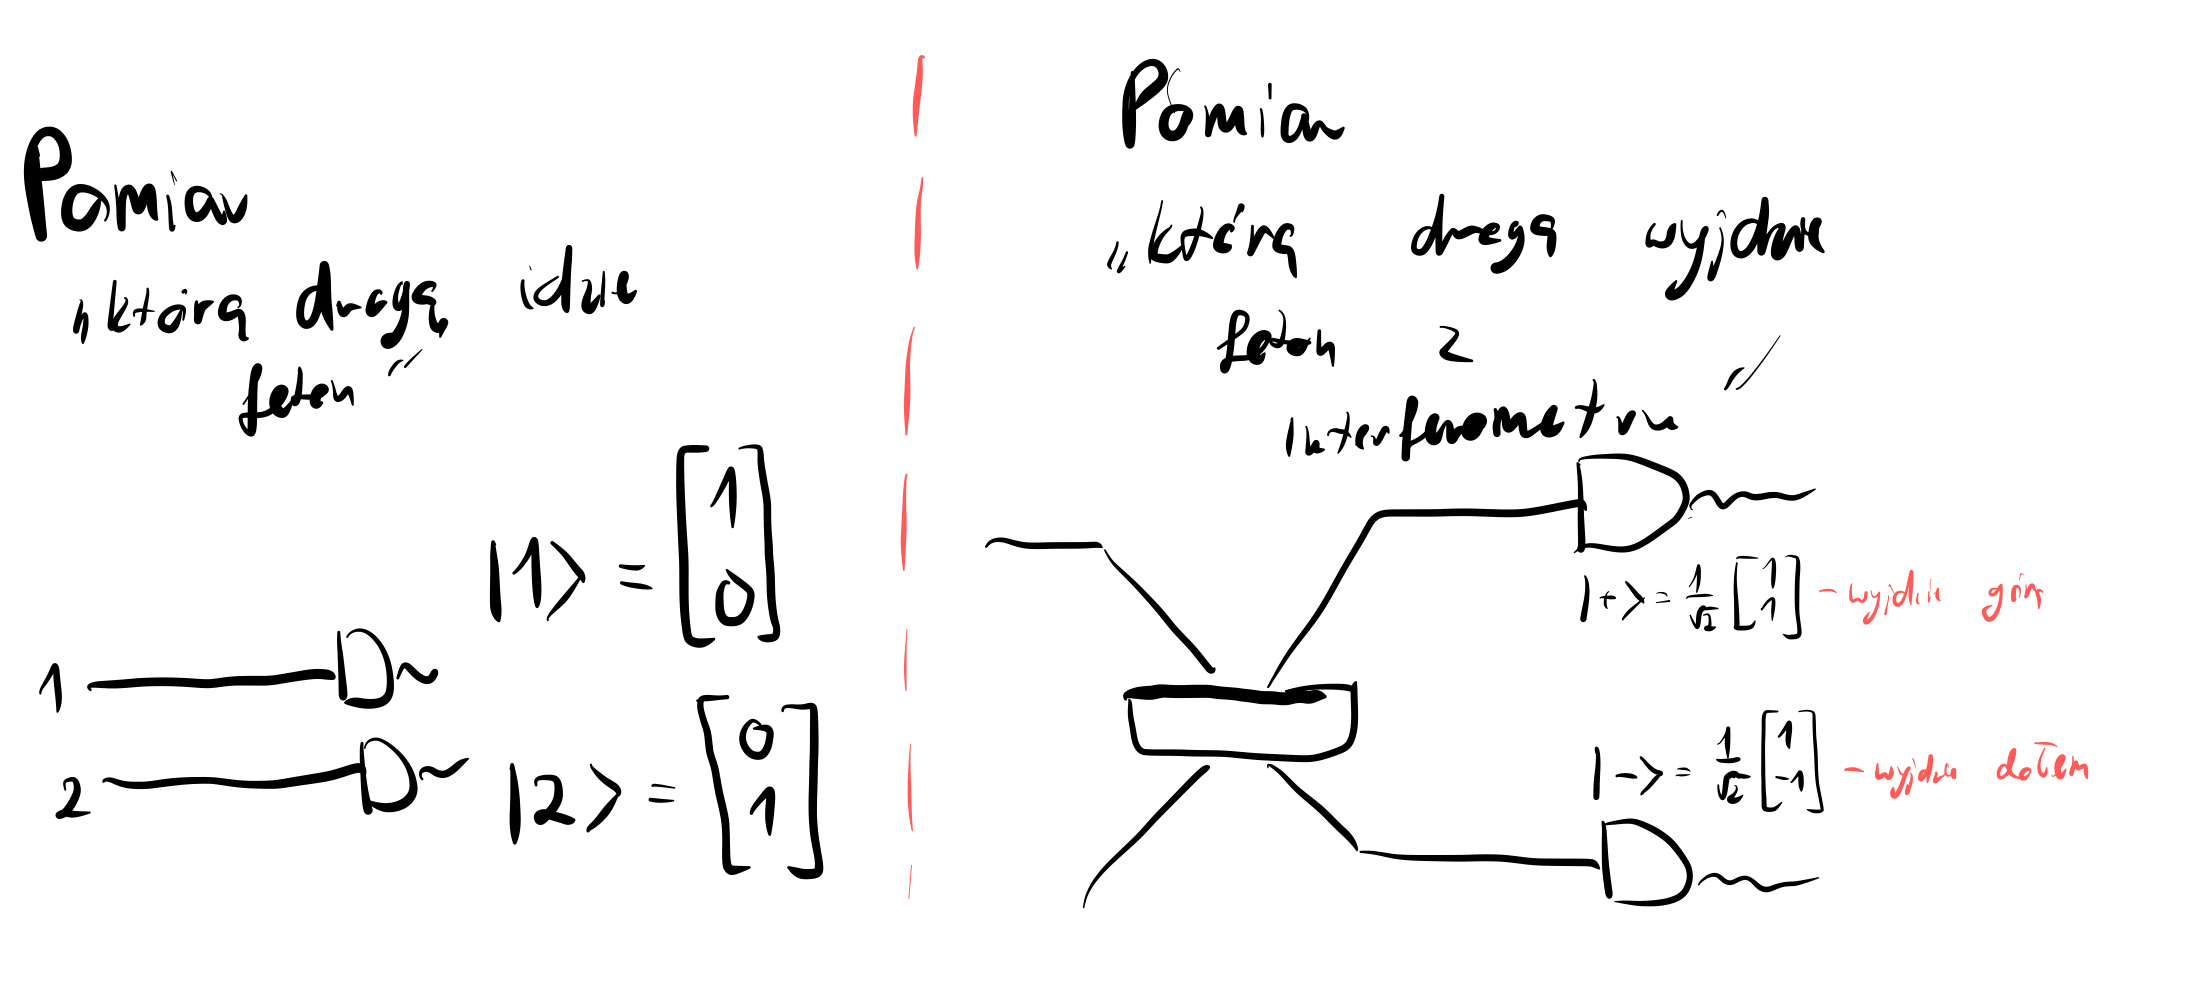 Pomiar
„którą drogą idzie
foton”
|1> = [1 0]
1
2
|2> = [0 1]
Pomiar
„którą drogą wyjdzie
foton z
interferometru”
|+> = 1/√2 [1 1] - wyjdzie górą
|-> = 1/√2 [1 -1] - wyjdzie dołem